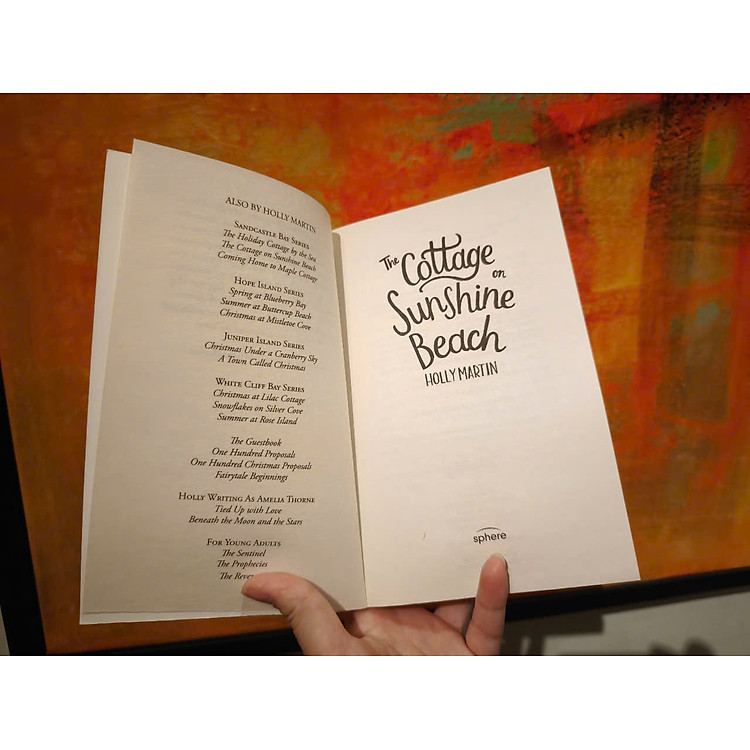 ALSO BY HOLLY MARTIN
SANDCASTLE BAY SERIES
The Holiday Cottage by the Sea
The Cottage on Sunshine Beach
Coming Home to Maple Cottage
HOPE ISLAND SERIES
Spring at Blueberry Bay
Summer at Buttercup Beach
Christmas at Mistletoe Cove
JUNIPER ISLAND SERIES
Christmas Under a Cranberry Sky
A Town Called Christmas
WHITE CLIFF BAY SERIES
Christmas at Lilac Cottage
Snowflakes on Silver Cove
Summer at Rose Island
The Guestbook
One Hundred Proposals
One Hundred Christmas Proposals
Fairytale Beginnings
HOLLY WRITING AS AMELIA THORNE
Tied Up with Love
Beneath the Moon and the Stars
FOR YOUNG ADULTS
The Sentinel
The Prophecies
The
The Cottage on
Sunshine
Beach
HOLLY MARTIN
sphere